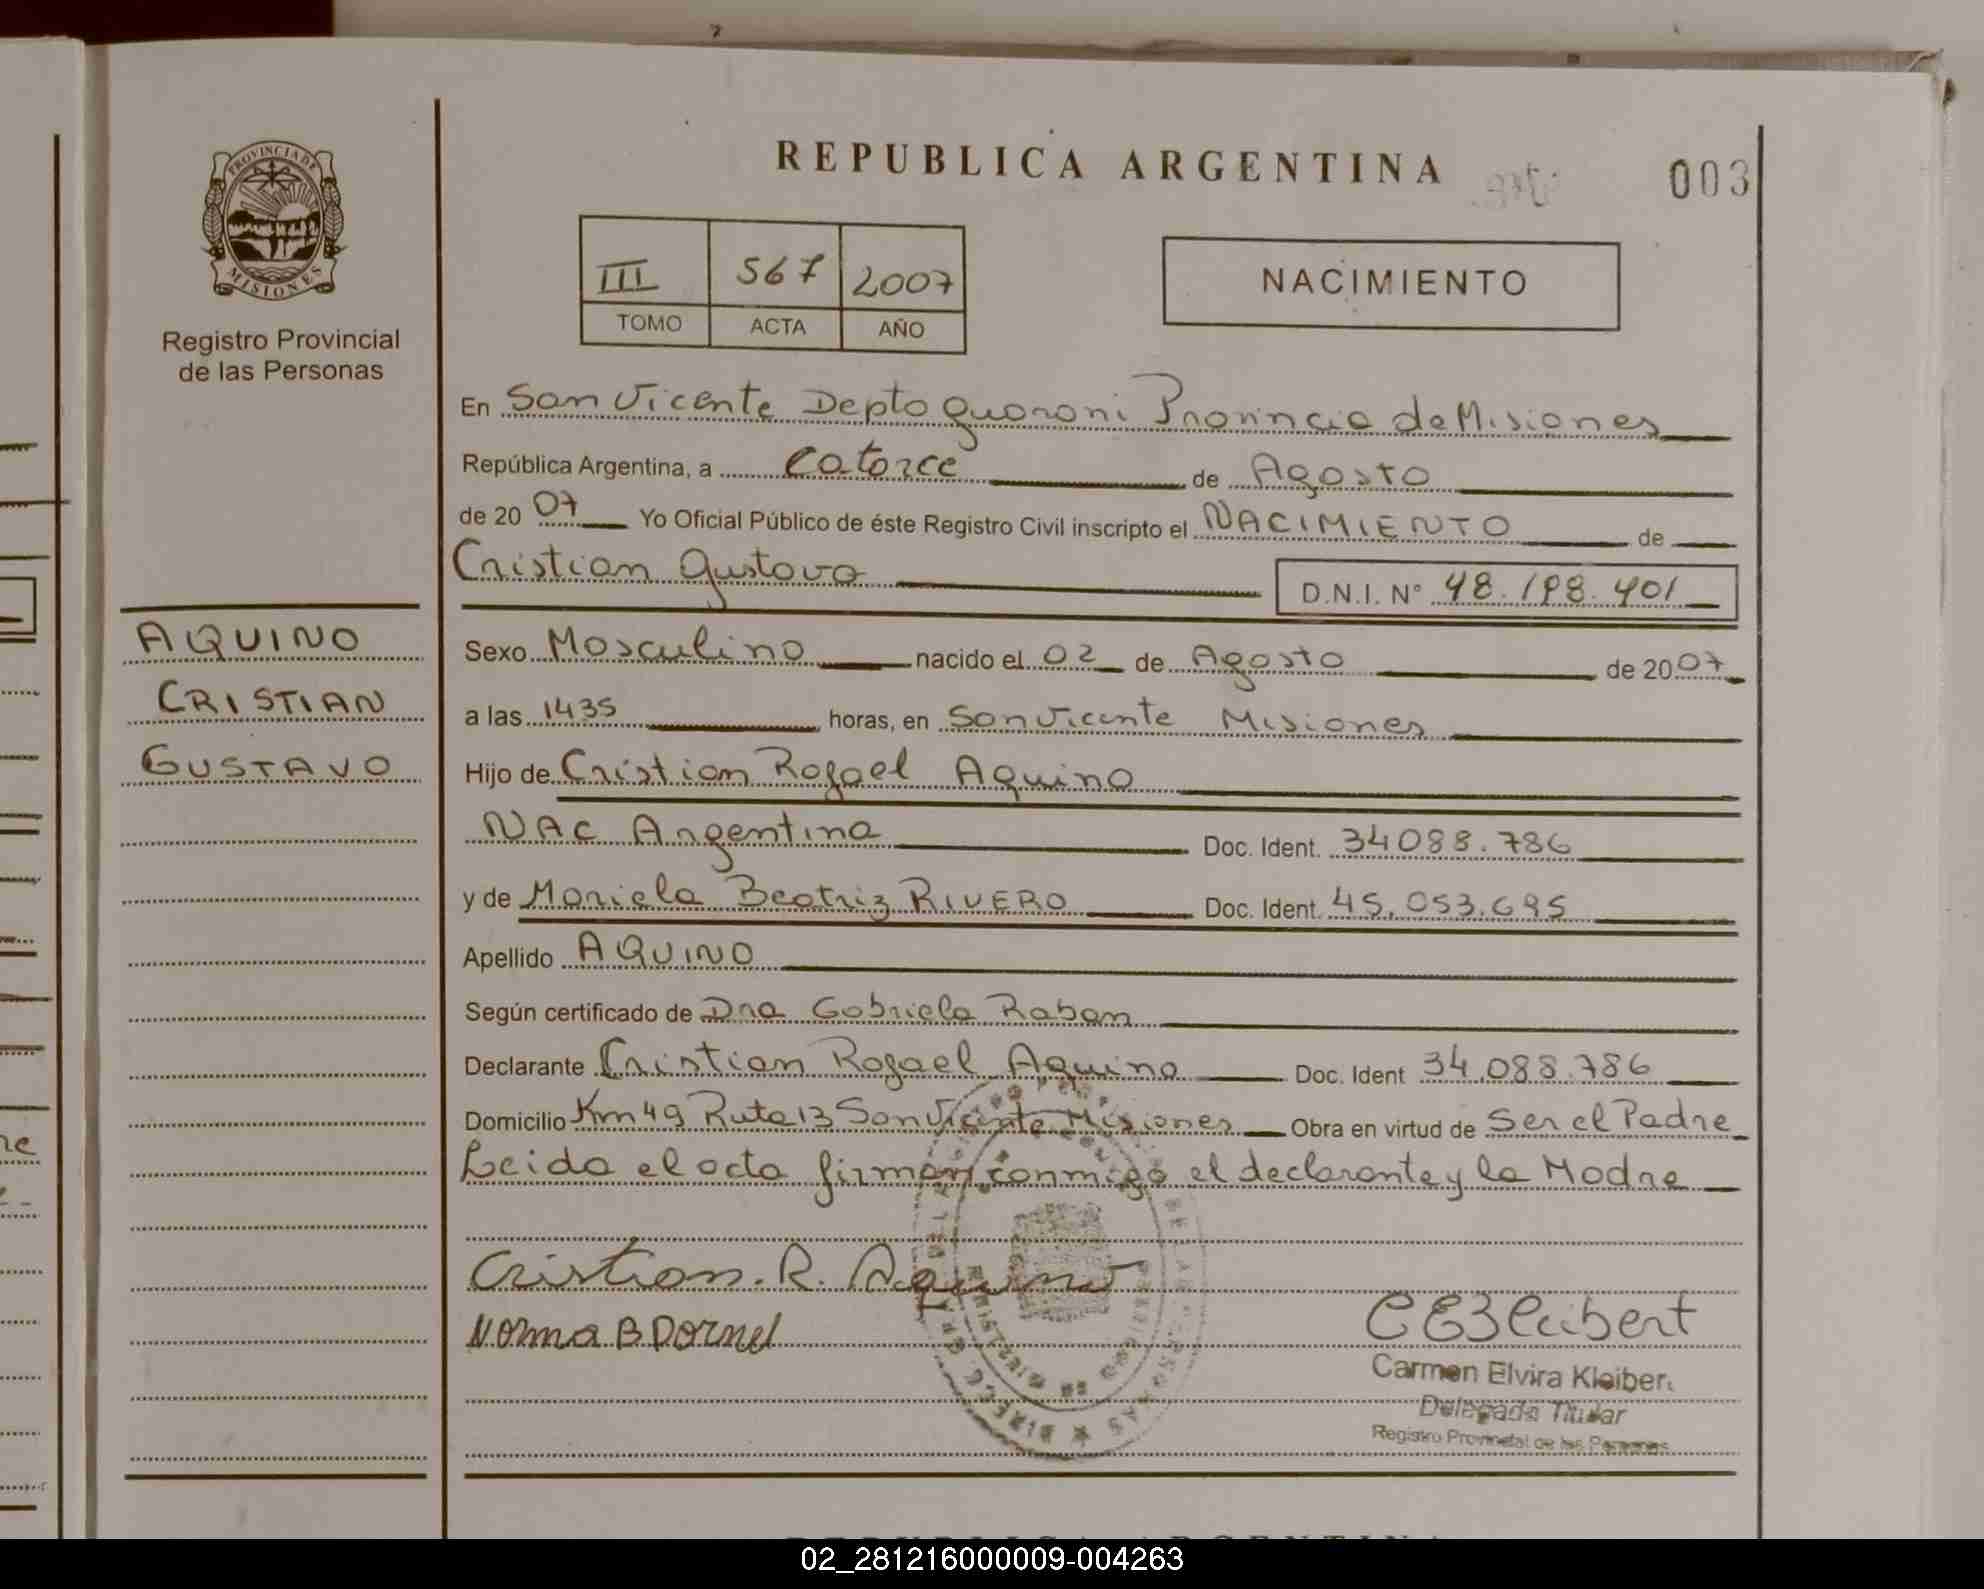 REPUBLICA ARGENTINA
003
PROVINCIA DE
MISIONES
Registro Provincial
de las Personas
III 567 2007
TOMO ACTA AÑO
NACIMIENTO
En San Vicente Depto Guarani Provincia de Misiones
República Argentina, a Catorce de Agosto
de 20 07 Yo Oficial Público de éste Registro Civil inscripto el NACIMIENTO de
Cristian Gustavo D.N.I. N° 48.198.401
AQUINO
CRISTIAN
GUSTAVO
Sexo Masculino nacido el 02 de Agosto de 20 07
a las 1435 horas, en San Vicente Misiones
Hijo de Cristian Rafael Aquino
NAC Argentina Doc. Ident. 34088.786
y de Mariela Beatriz RIVERO Doc. Ident. 45.053.695
Apellido AQUINO
Según certificado de Dra Gabriela Raban
Declarante Cristian Rafael Aquino Doc. Ident 34.088.786
Domicilio Km 49 Ruta 13 San Vicente Misiones Obra en virtud de Ser el Padre
Leida el acta firman conmigo el declarante y la Madre
Cristian. R. Aquino
Norma B Dornel
Carmen Elvira Kleibert
Delegada Titular
Registro Provincial de las Personas
REPUBLICA ARGENTINA
02_281216000009-004263